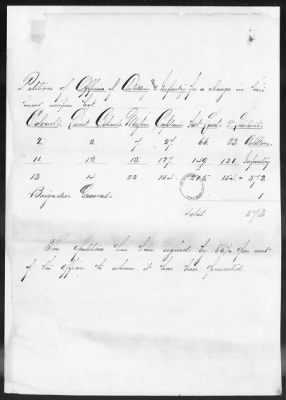 Petition of Officers of Artillery & Infantry for a change in their
uniform hat.
Colonels, Lieut. Colonels, Majors, Captains, 1st Lieuts. 2d Lieutenants.
2 2 7 27 66 23 Artillery
11 12 15 127 149 131 Infantry
13 14 22 154 215 154 = 572
Brigadier General 1
Total 573
This petition has been signed by per cent
of the officers to whom it has been presented